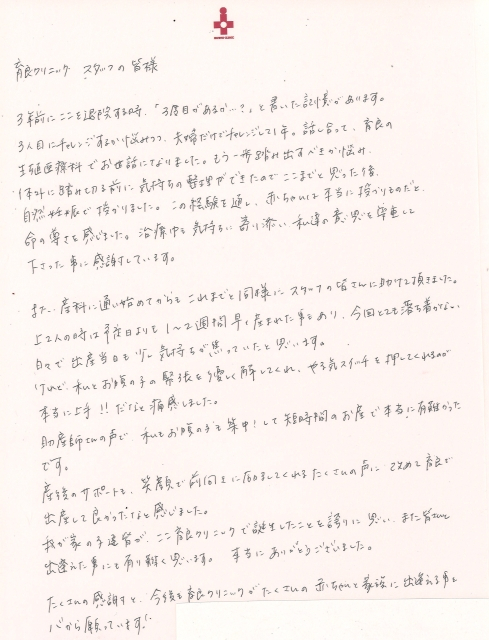 育良クリニック スタッフの皆様
3年前にここを退院する時、「3度目があるか…?」と書いた記憶があります。
3人目にチャレンジするか悩みつつ、夫婦だけでチャレンジして1年。話し合って、育良の
生殖医療科でお世話になりました。もう一歩踏み出すべきか悩み、
体外に踏み切る前に気持ちの整理ができたのでここまでと思った後、
自然妊娠で授かりました。この経験を通し、赤ちゃんは本当に授かりものだと、
命の尊さを感じました。治療中も気持ちに寄り添い私達の意思を尊重して
下さった事に感謝しています。
また、産科に通い始めてからもこれまでと同様にスタッフの皆さんに助けて頂きました。
上2人の時は予定日よりも1〜2週間早く産まれた事もあり、今回とても落ち着かない
日々で出産当日も少し気持ちが焦っていたと思います。
けれど、私とお腹の子の緊張を優しく解してくれ、やる気スイッチを押してくれるのが
本当に上手!!だなと痛感しました。
助産師さんの声で、私もお腹の子も集中!して短時間のお産で本当に有難かった
です。
産後のサポートも、笑顔で前向きに励ましてくれるたくさんの声に、改めて育良で
出産して良かったなと感じました。
我が家の子達皆が、ここ育良クリニックで誕生したことを誇りに思い、また皆さんに
出逢えた事にも有り難く思います。本当にありがとうございました。
たくさんの感謝と、今後も育良クリニックがたくさんの赤ちゃんと家族に出逢える事を
心から願っています!